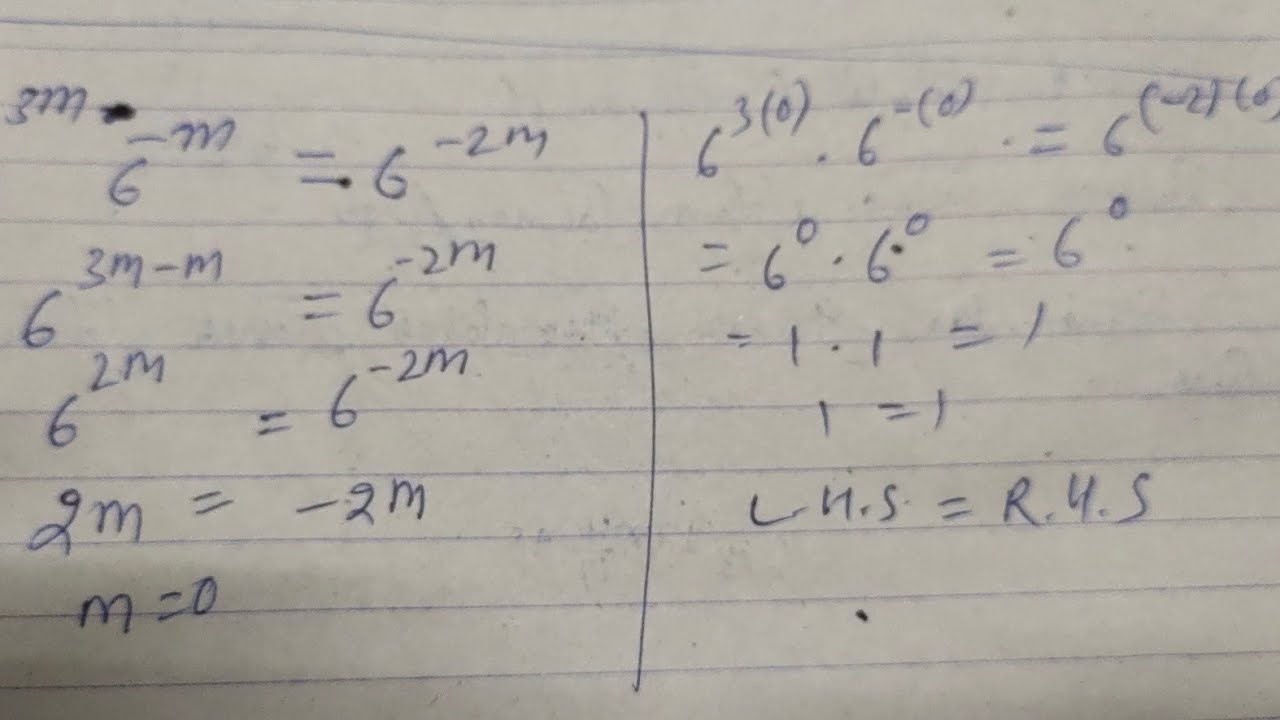 3m · 6^-m = 6^-2m
6^3m-m = 6^-2m
6^2m = 6^-2m
2m = -2m
m = 0
6^3(0) · 6^-(0) · = 6^(-2)(0
= 6^0 · 6^0 = 6^0
= 1 · 1 = 1
1 = 1
L.H.S. = R.H.S